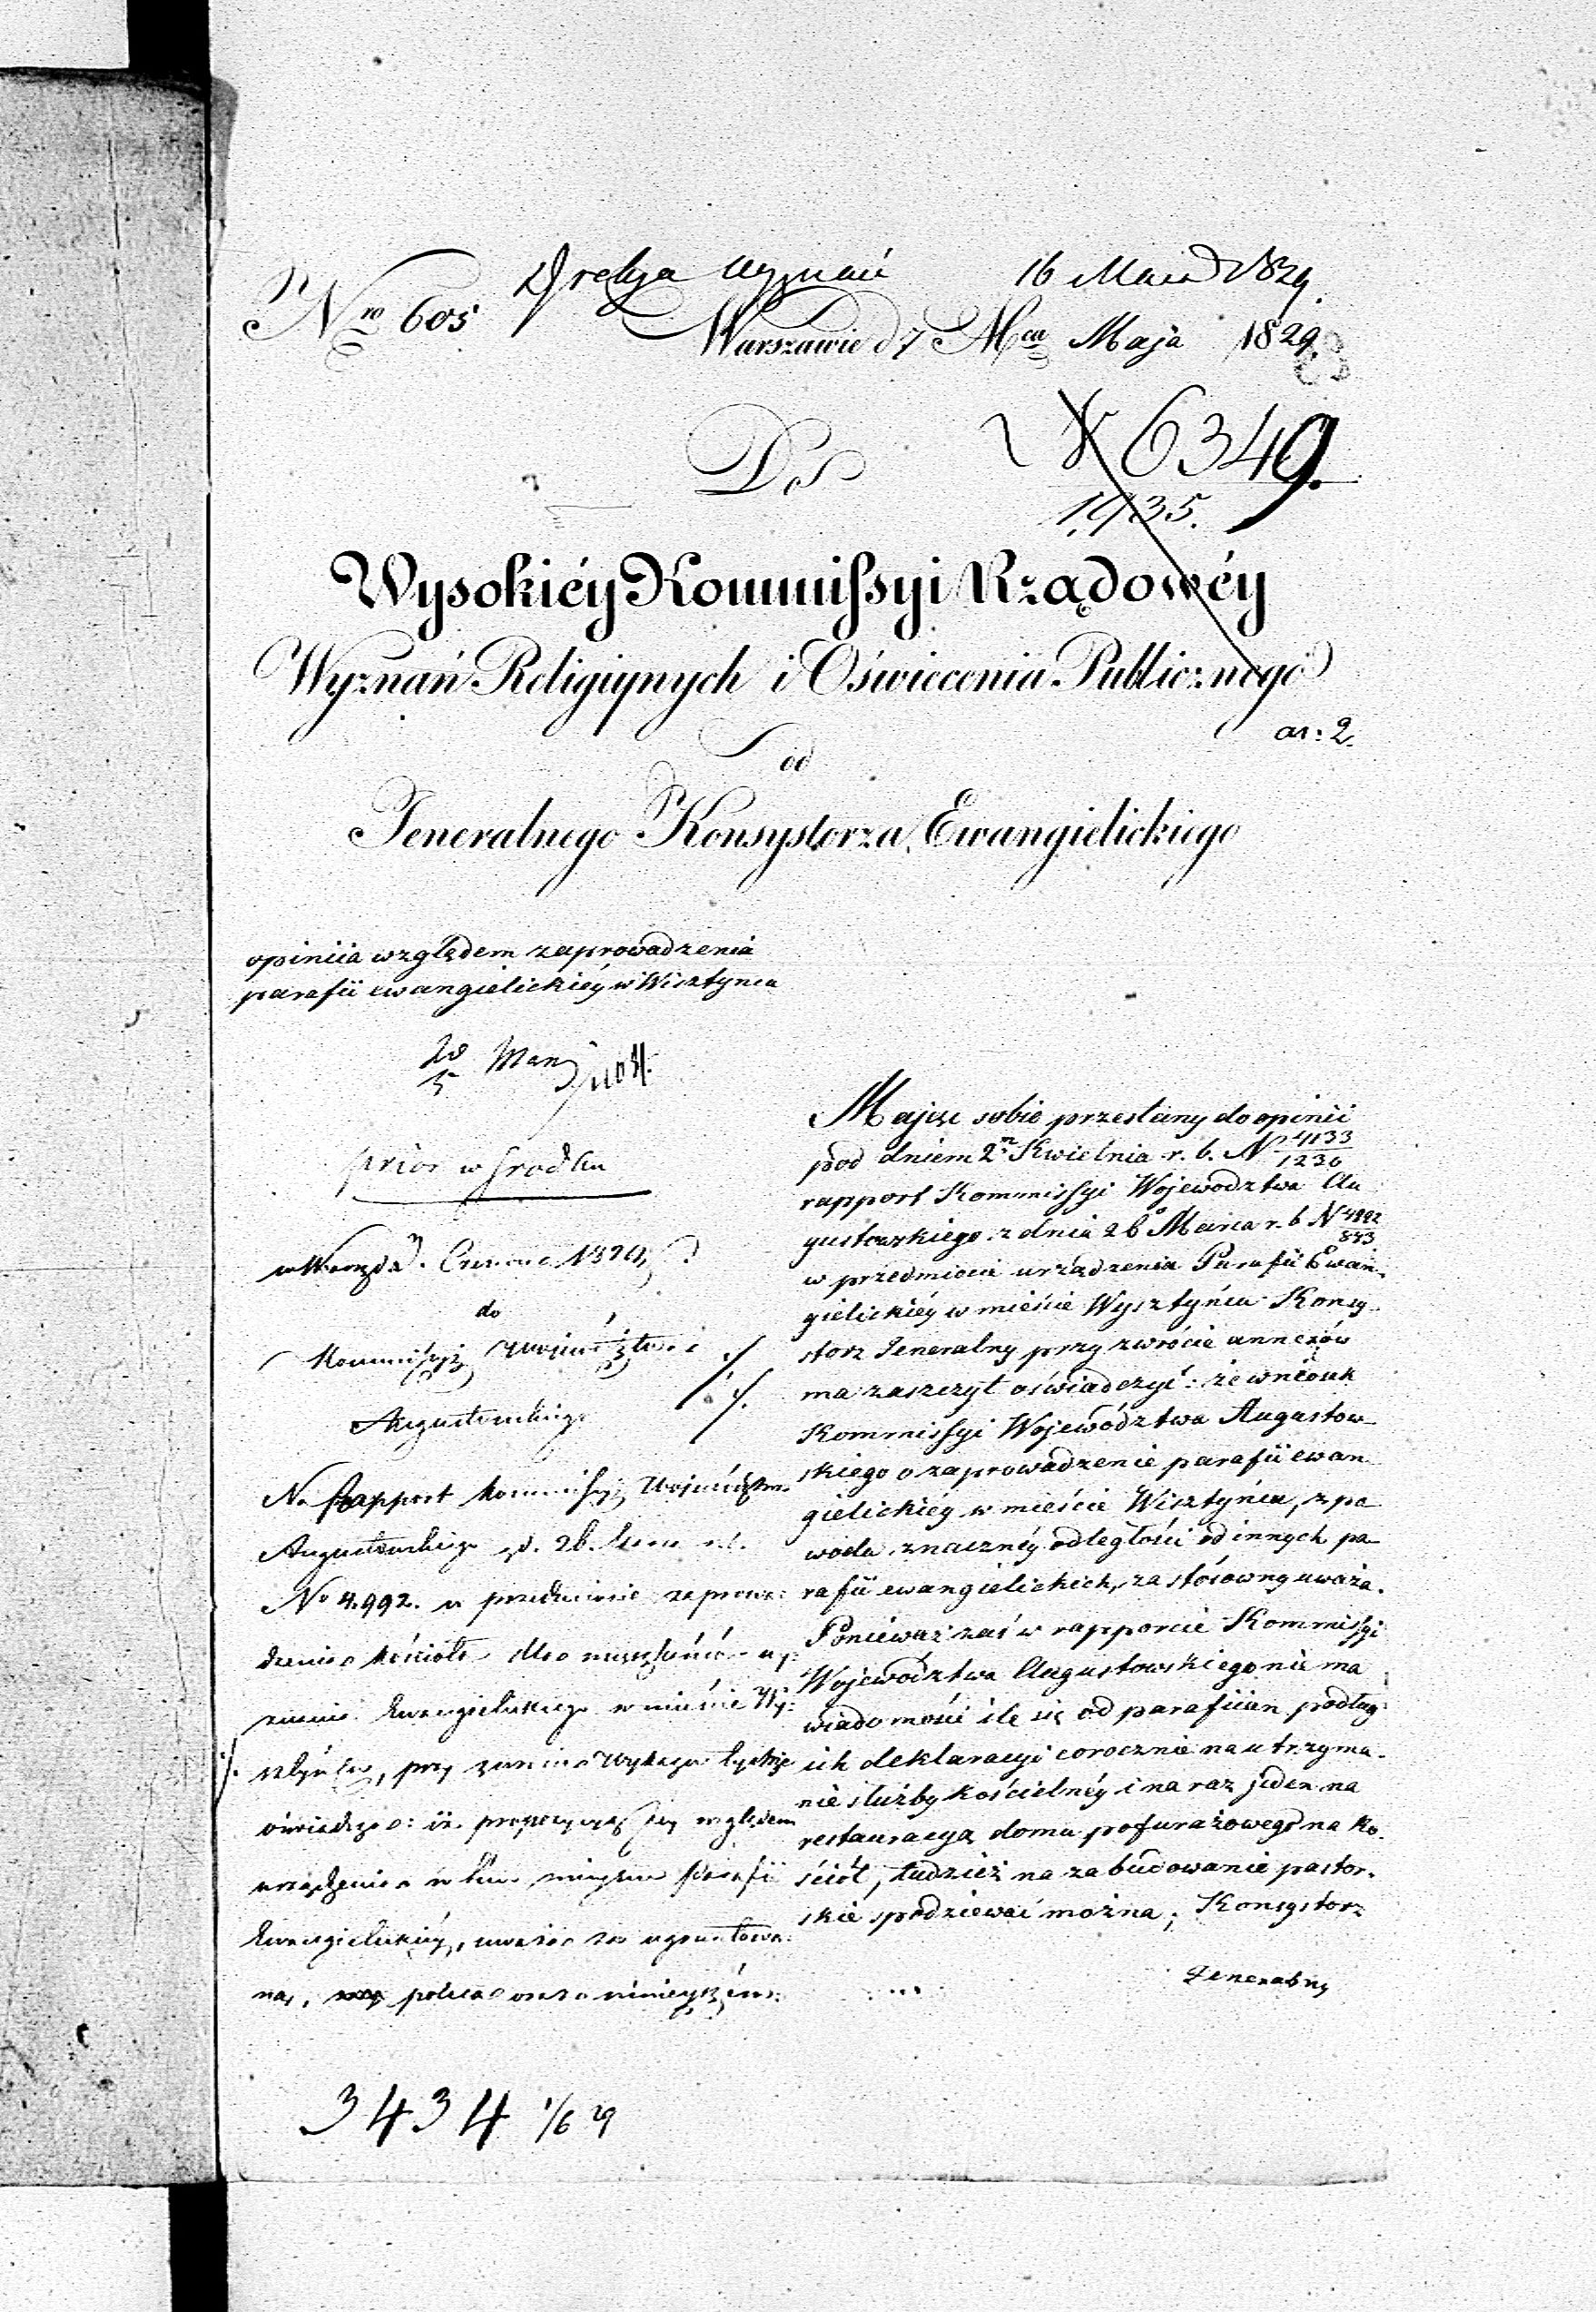 Dyrekcya Wyznań 16 Maia 1829.
Nro 605 Warszawie d 7 Mca Maja 1829.
Do
6349.
1935.
Wysokiéy Kommissyi Rządowéy
Wyznań Religiynych i Oświecenia Publicznego
an: 2.
od
Jeneralnego Konsystorza Ewangielickiego
opiniia względem zaprowadzenia
parafii ewangielickiéy w Wisztyńcu
28 Maj
5
prior w środku
do
Kommissyi Województwa
Augustowskiego
Na Rapport Kommissyi Województwa
Augustowskiego z d. 26.
No 4.992. w przedmiocie zaprowa:
dzenia kościoła dla mieszkańców wy:
znania Ewangielickiego w mieście Wy:
sztyńcu, przy zwrocie
oświadcza: iż propozycyą względem
urządzenia w tém mieyscu Parafii
Ewangielickiéy, uważa za ugruntowa:
ną,
Mając sobie przesłany do opinii
pod dniem 2m Kwietnia r. b. N 4133/1230
rapport Kommissyi Województwa Au
gustowskiego z dnia 26 Marca r. b N 4992/843
w przedmiocie urządzenia Parafii Ewan-
gielickiéy w mieście Wysztyńcu Konsy-
storz Jeneralny przy zwrócie annexów
ma zaszczyt oświadczyć: że wniosek
Kommissyi Województwa Augustow-
skiego o zaprowadzenie parafii ewan
gielickiéy w mieście Wisztyńcu, z po
wodu znacznéy odległości od innych pa-
rafii ewangielickich, za stósowny uważa.
Ponieważ zaś w rapporcie Kommissyi
Województwa Augustowskiego nie ma
wiadomości ile się od parafiian podług
ich deklaracyi corocznie na utrzyma-
nie służby kościelnéy i na raz jeden na
restauracyą domu pofurażowego na ko-
ściół, tudzież na zabudowanie pastor-
skie spodziewać można; Konsystorz
Jeneralny
3434 1/6 29